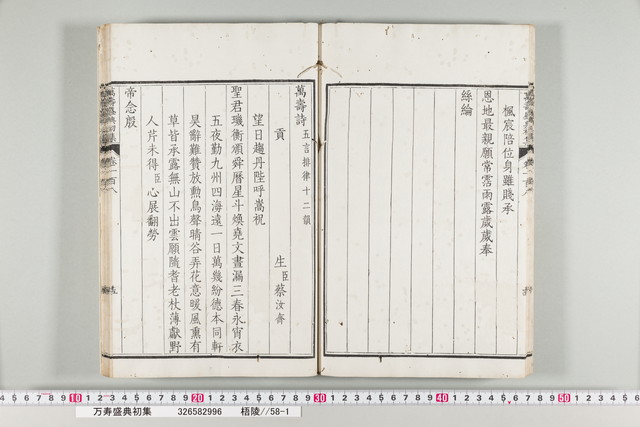 楓宸陪位身雖賤承
恩地最親願常霑雨露歲歲奉
絲綸
萬壽詩五言排律十二韻
貢生臣蔡汝
望日趨丹陛呼嵩祝
聖君璣衡頒舜曆星斗煥堯文晝漏三春永宵衣
五夜勤九州四海遠一日萬幾紛德本同軒
昊辭難贊放勳鳥聲晴谷弄花意暖風熏有
草皆承露無山不出雲願隨耆老杖薄獻野
人芹未得臣心展翻勞
帝念殷
10 20 30 40 50
万寿盛典初集 326582996 梧陵//58-1